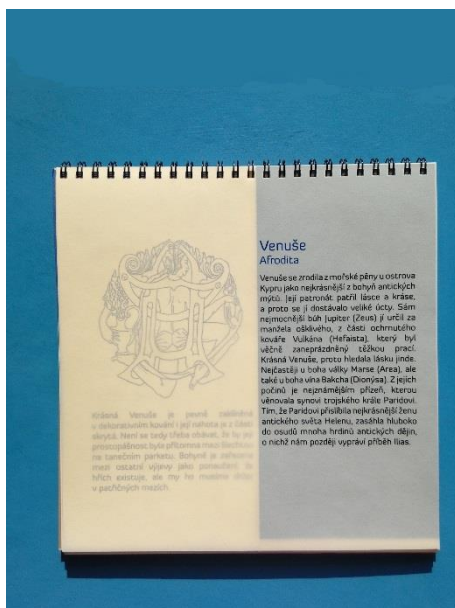 Venuše
Afrodita
Venuše se zrodila z mořské pěny u ostrova
Kypru jako nejkrásnější z bohyň antických
mýtů. Její patronát patřil lásce a kráse,
a proto se jí dostávalo veliké úcty. Sám
nejmocnější bůh Jupiter (Zeus) jí určil za
manžela ošklivého, z části ochrnutého
kováře Vulkána (Hefaista), který byl
věčně zaneprázdněný těžkou prací.
Krásná Venuše, proto hledala lásku jinde.
Nejčastěji u boha války Marse (Area), ale
také u boha vína Bakcha (Dionýsa). Z jejích
počinů je nejznámějším přízeň, kterou
věnovala synovi trojského krále Paridovi.
Tím, že Paridovi přislíbila nejkrásnější ženu
antického světa Helenu, zasáhla hluboko
do osudů mnoha hrdinů antických dějin,
o nichž nám později vypráví příběh Ilias.
Krásná Venuše je pevně zakletá
v dekorativním kování i její nahota je z části
skrytá. Není se tedy třeba obávat, že by její
prostopášnost byla přítomna mezi šlechtou
na tanečním parketu. Bohyně je zařazena
mezi ostatní výjevy jako ponaučení, že
hřích existuje, ale my ho musíme držet
v patřičných mezích.